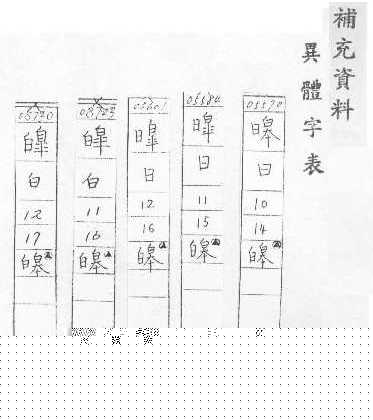 補充資料
異體字表
05570
暤
日
10
14
皞
05580
暭
日
11
15
皞
05601
曍
日
12
16
皞
皡
白
11
16
皞
皥
白
12
17
皞